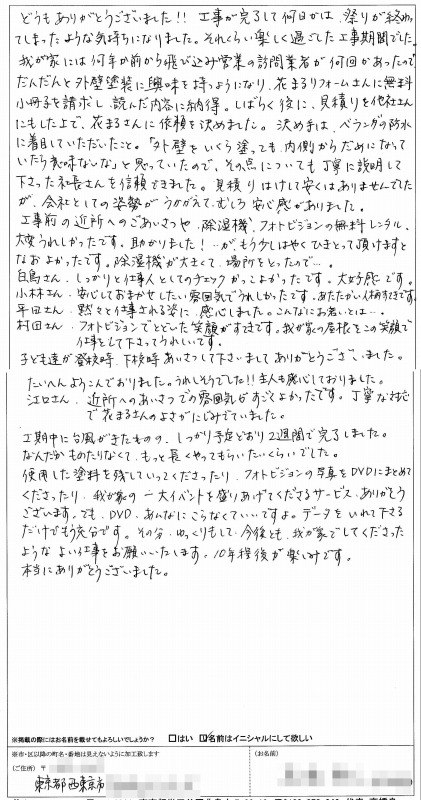 どうもありがとうございました!! 工事が完了して何日かは、祭りが終わっ
てしまったような気持ちになりました。それくらい楽しく過ごした工事期間でした。
我が家には何年か前から飛び込み営業の訪問業者が何回かあったので
だんだんと外壁塗装に興味を持つようになり、花まるリフォームさんに無料
小冊子を請求し、読んだ内容に納得。しばらく後に、見積りを他社さん
にもした上で、花まるさんに依頼を決めました。決め手は、ベランダの防水
に着目していただいたこと。「外壁をいくら塗っても、内側からだめになって
いたら意味ないな」と思っていたので、その点についても丁寧に説明して
下さった社長さんを信頼できました。見積りはけして安くはありませんでした
が、会社としての姿勢がうかがえて、むしろ安心感がありました。
工事前の近所へのごあいさつや、除湿機、フォトビジョンの無料レンタル、
大変うれしかったです。助かりました! …が、もう少しはやくひきとって頂けますと
なおよかったです。除湿機が大きくて、場所をとったので…。
白鳥さん、しっかりと仕事人としてのチェックかっこよかったです。大好感です。
小林さん、安心しておまかせしたい雰囲気でうれしかったです。あたたかい人柄すてきです。
平田さん、黙々と仕事される姿に感心しました。こんなにお若いとは…。
村田さん、フォトビジョンでとどいた笑顔がすてきです。我が家の屋根をこの笑顔で
仕事をして下さってうれしいです。
子ども達が登校時、下校時あいさつして下さいましてありがとうございました。
たいへんよろこんでおりました。うれしそうでした!! 主人も感心しておりました。
江口さん、近所へのあいさつでの雰囲気がすごくよかったです。丁寧な対応
で花まるさんのよさがにじみでていました。
工期中に台風がきたものの、しっかり予定どおり2週間で完了しました。
なんだかものたりなくて、もっと長くやってもらいたいくらいでした。
使用した塗料を残していってくださったり、フォトビジョンの写真をDVDにまとめて
くださったり、我が家の一大イベントを盛りあげてくださるサービス、ありがとう
ございます。でも、DVD、あんなにこらなくていいですよ。データをいれて下さる
だけでもう充分です。その分、ゆっくりもして、今後とも、我が家でしてくださった
ような よい仕事をお願いいたします。10年程後が楽しみです。
本当にありがとうございました。
※掲載の際にはお名前を載せてもよろしいでしょうか? □はい ☑名前はイニシャルにして欲しい
※市・区以降の町名・番地は見えないように加工致します
(ご住所) 〒
(お名前)
東京都西東京市